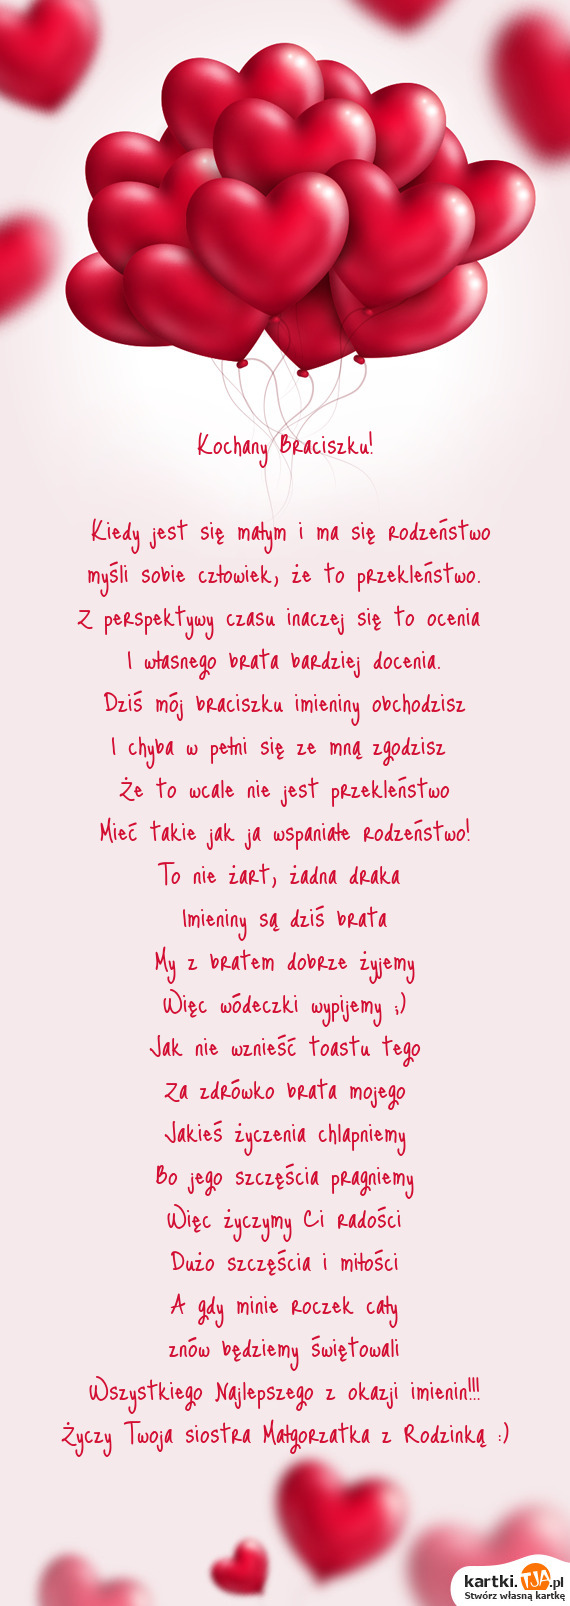 Kochany Braciszku!
Kiedy jest się małym i ma się rodzeństwo
myśli sobie człowiek, że to przekleństwo.
Z perspektywy czasu inaczej się to ocenia
I własnego brata bardziej docenia.
Dziś mój braciszku imieniny obchodzisz
I chyba w pełni się ze mną zgodzisz
Że to wcale nie jest przekleństwo
Mieć takie jak ja wspaniałe rodzeństwo!
To nie żart, żadna draka
Imieniny są dziś brata
My z bratem dobrze żyjemy
Więc wódeczki wypijemy ;)
Jak nie wznieść toastu tego
Za zdrówko brata mojego
Jakieś życzenia chlapniemy
Bo jego szczęścia pragniemy
Więc życzymy Ci radości
Dużo szczęścia i miłości
A gdy minie roczek cały
znów będziemy świętowali
Wszystkiego Najlepszego z okazji imienin!!!
Życzy Twoja siostra Małgorzatka z Rodzinką :)
kartki.TJA.pl
Stwórz własną kartkę